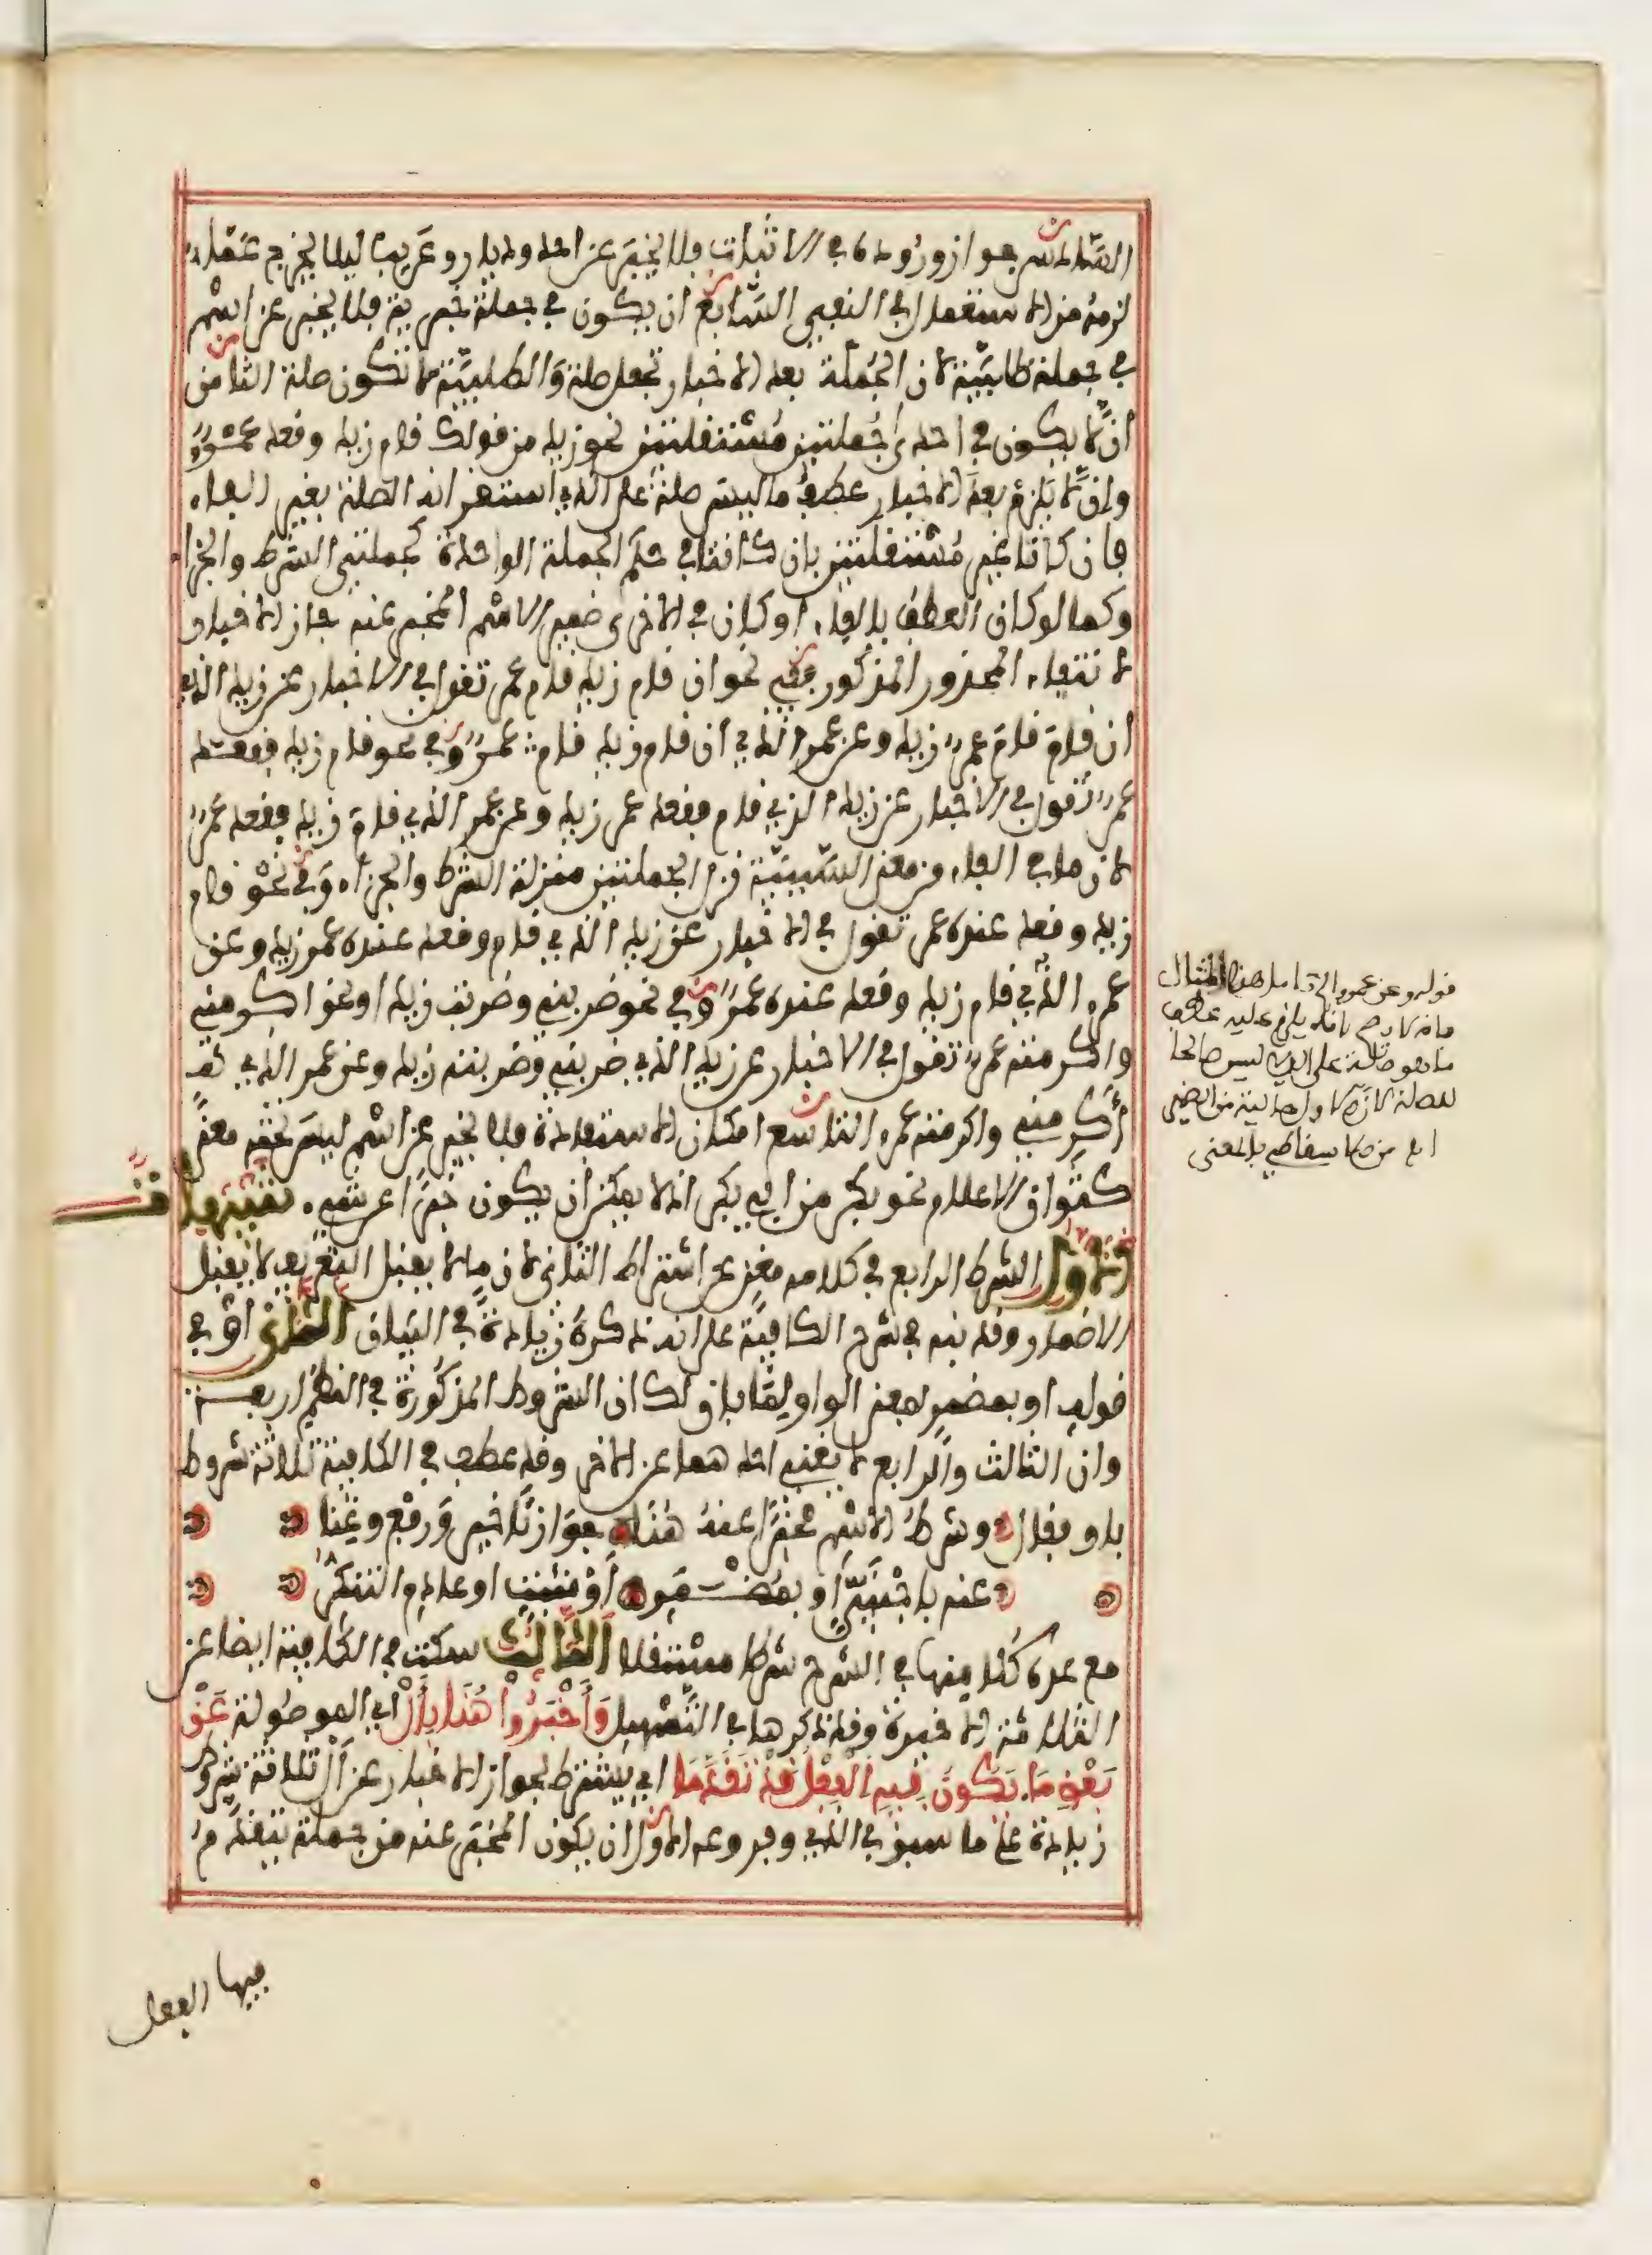 السادس جواز وروده في الاثبات فلا يخبر عن احد وديار وعريب ليلا يخرج عما
لزمه من الاستعمال في النفي السابع ان يكون في جملة خبرية فلا يخبر عن اسم
في جملة طلبية لان الجملة بعد الاخبار تجعل صلة والطلبية لا تكون صلة الثامن
ان لا يكون في احدى جملتين مستقلتين نحو زيد من قولك قام زيد وقعد عمرو
وان لا يلزم بعد الاخبار عطف ما ليس صلة على الذي استقر انه الصلة بغير الفاء
فان كانتا غير مستقلتين بان كانتا في حكم الجملة الواحدة كجملتي الشرط والجزاء
وكما لو كان العطف بالفاء او كان في الاخرى ضمير الاسم المخبر عنه جاز الاخبار
لانتفاء المحذور المذكور ففي نحو ان قام زيد قام عمر تقول في الاخبار عن زيد الذي
ان قام قام عمر زيد وعن عمر الذي ان قام زيد قام عمرو وفي نحو قام زيد فقعد
عمر تقول في الاخبار عن زيد الذي قام فقعد عمر زيد وعن عمر الذي قام زيد فقعد عمر
لان ما في الفاء من معنى السببية نزل الجملتين منزلة الشرط والجزاء وفي نحو قام
زيد وقعد عنده عمر تقول في الاخبار عن زيد الذي قام وقعد عنده عمر زيد وعن
عمر الذي قام زيد وقعد عنده عمرو وفي نحو ضربني وضربت زيد او نحو اكرمني
واكرمته عمر تقول في الاخبار عن زيد الذي ضربني وضربته زيد وعن عمر الذي
اكرمني واكرمته عمر التاسع امكان الاستفادة فلا يخبر عن اسم ليس تحته معنى
كثواني الاعلام نحو بكر من ابي بكر اذ لا يمكن ان يكون خبرا عن شيء تنبيهات
الاول الشرط الرابع في كلامه مغن عن اشتراط الثاني لان ما لا يقبل التعريف لا يقبل
الاضمار وقد نبه في شرح الكافية على انه ذكره زيادة في البيان الثاني او في
قوله او بمضمر بمعنى الواو لقابان لك ان الشروط المذكورة في النظم اربعة
وان الثالث والرابع لا يغني احدهما عن الاخر وقد عطف في الكافية ثلاثة شروط
باو فقال وشرط الاسم مخبرا عنه هنا جواز تاخير ورفع وغنا
عنه باجنبي او بمضمر او مثبت او عادم التنكر
مع عده كلا منها في الشرح شرطا مستقلا الثالث سكت في الكافية ايضا عن
الثلاثة الاخيرة وقد ذكرها في التسهيل وأخبروا هنا بأل اي الموصولة عن
بعض ما يكون فيه الفعل قد تقدما اي يشترط لجواز الاخبار عن أل ثلاثة شروط
زيادة على ما سبق في الذي وفروعه الاول ان يكون المخبر عنه من جملة تتقدم
فيها الفعل
قوله وعن عمرو الخ تامل هذا المثال
فانه لا يصح لانه يلزم عليه عطف
ما هو صلة على الذي ليس صالحا
للصلة